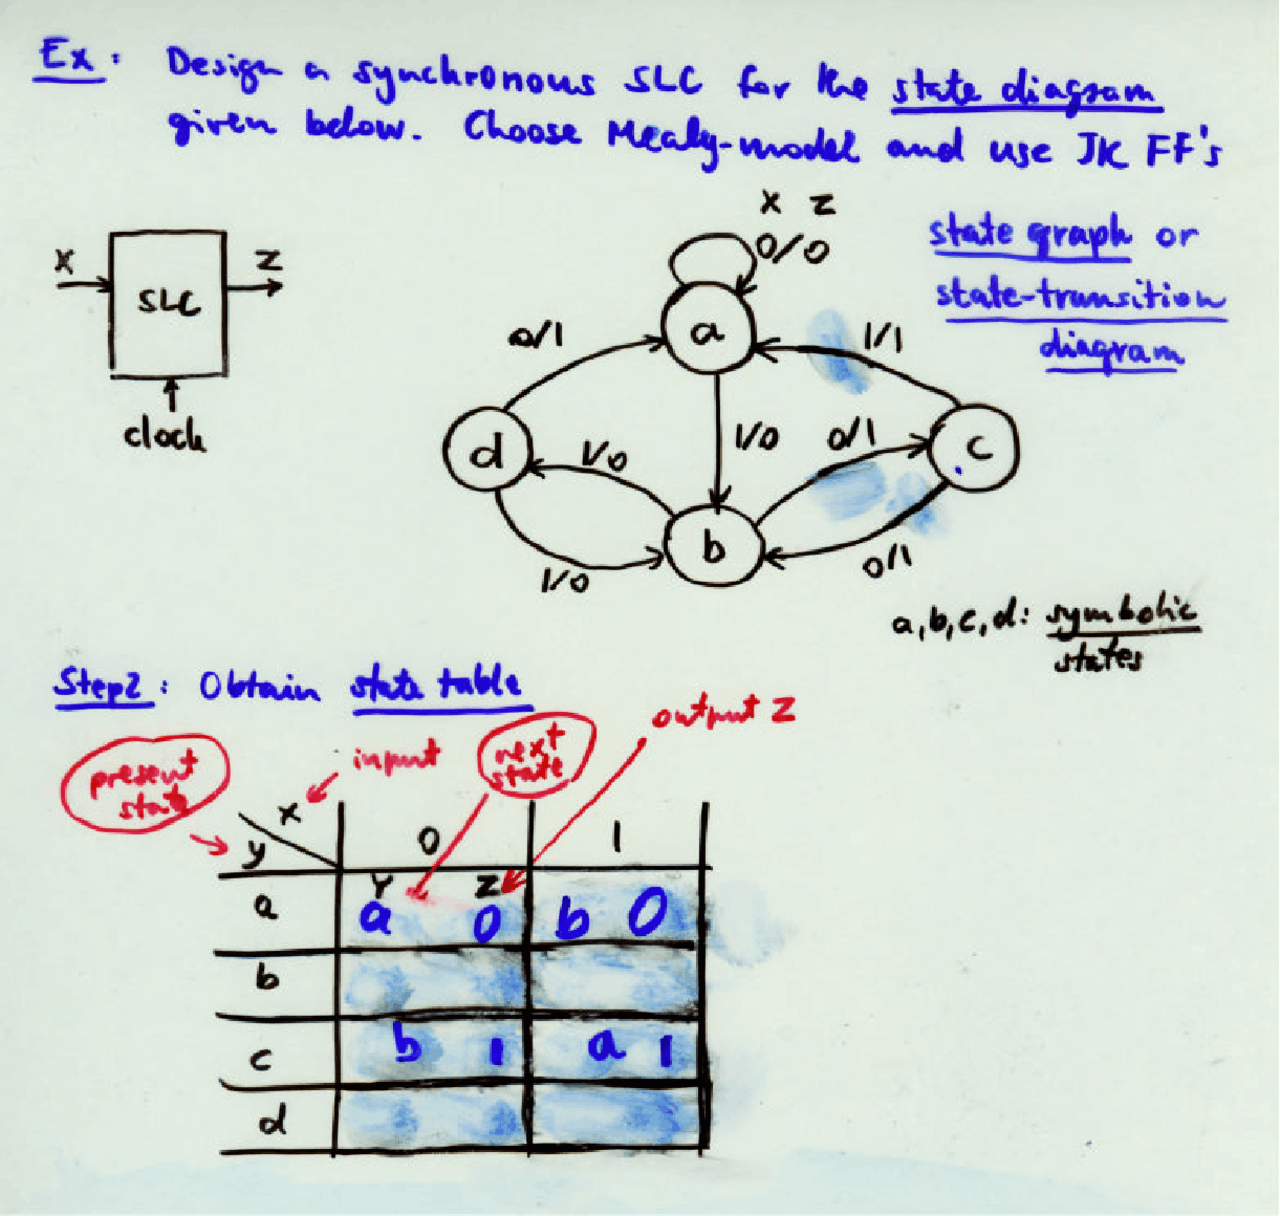 Ex: Design a synchronous SLC for the state diagram
given below. Choose Mealy-model and use JK FF's
X Z
0/0
state graph or
state-transition
diagram
X SLC Z
clock
a
0/1
1/1
d
1/0
1/0
0/1
c
b
1/0
0/1
a,b,c,d: symbolic
states
Step2: Obtain state table
output Z
present
state
input
next
state
x
y
0 1
Y Z
a a 0 b 0
b
c b 1 a 1
d